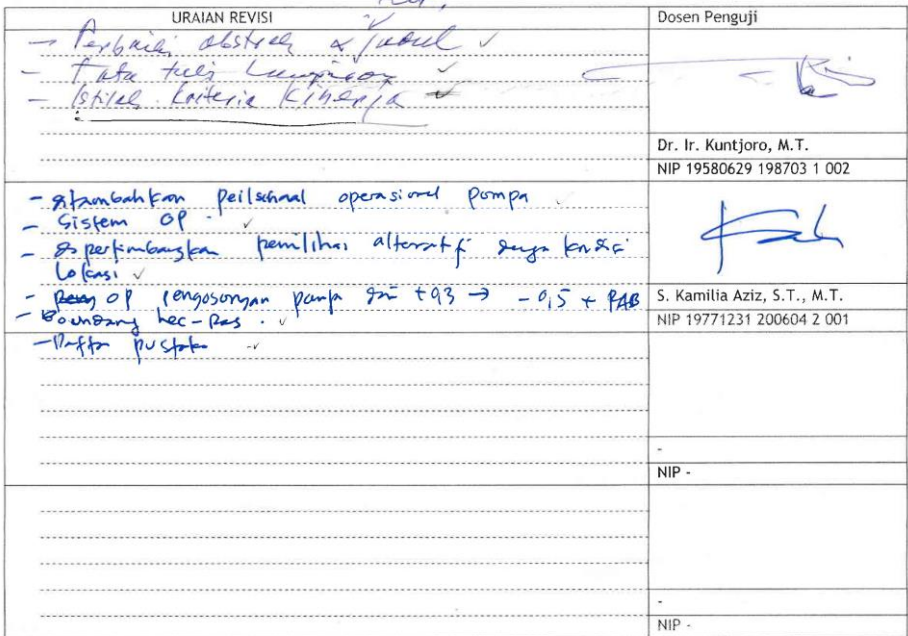 URAIAN REVISI
Dosen Penguji
- Perbaiki abstrak & judul ✓
- Tata tulis Lampiran ✓
- Istilah kriteria kinerja ✓
Dr. Ir. Kuntjoro, M.T.
NIP 19580629 198703 1 002
- ditambahkan peilschaal operasional pompa ✓
- Sistem OP . ✓
- dipertimbangkan pemilihan alternatif dengan kondisi
Lokasi ✓
- OP pengosongan pompa dari +0,3 → - 0,5 + RAB
- Boundary hec-Ras . ✓
S. Kamilia Aziz, S.T., M.T.
NIP 19771231 200604 2 001
- Daftar pustaka ✓
-
NIP -
-
NIP -